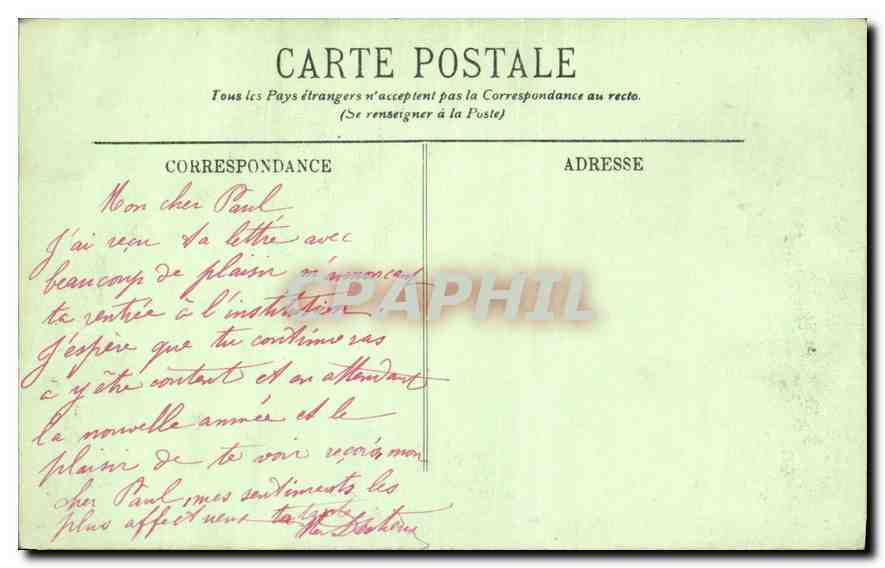 CARTE POSTALE
Tous les Pays étrangers n'acceptent pas la Correspondance au recto.
(Se renseigner à la Poste)
CORRESPONDANCE
ADRESSE
Mon cher Paul
J'ai reçu ta lettre avec
beaucoup de plaisir m'annonçant
ta rentrée à l'institution
J'espère que tu continueras
à y être content et en attendant
la nouvelle année et le
plaisir de te voir reçois mon
cher Paul mes sentiments les
plus affectueux ta tante
CPAPHIL